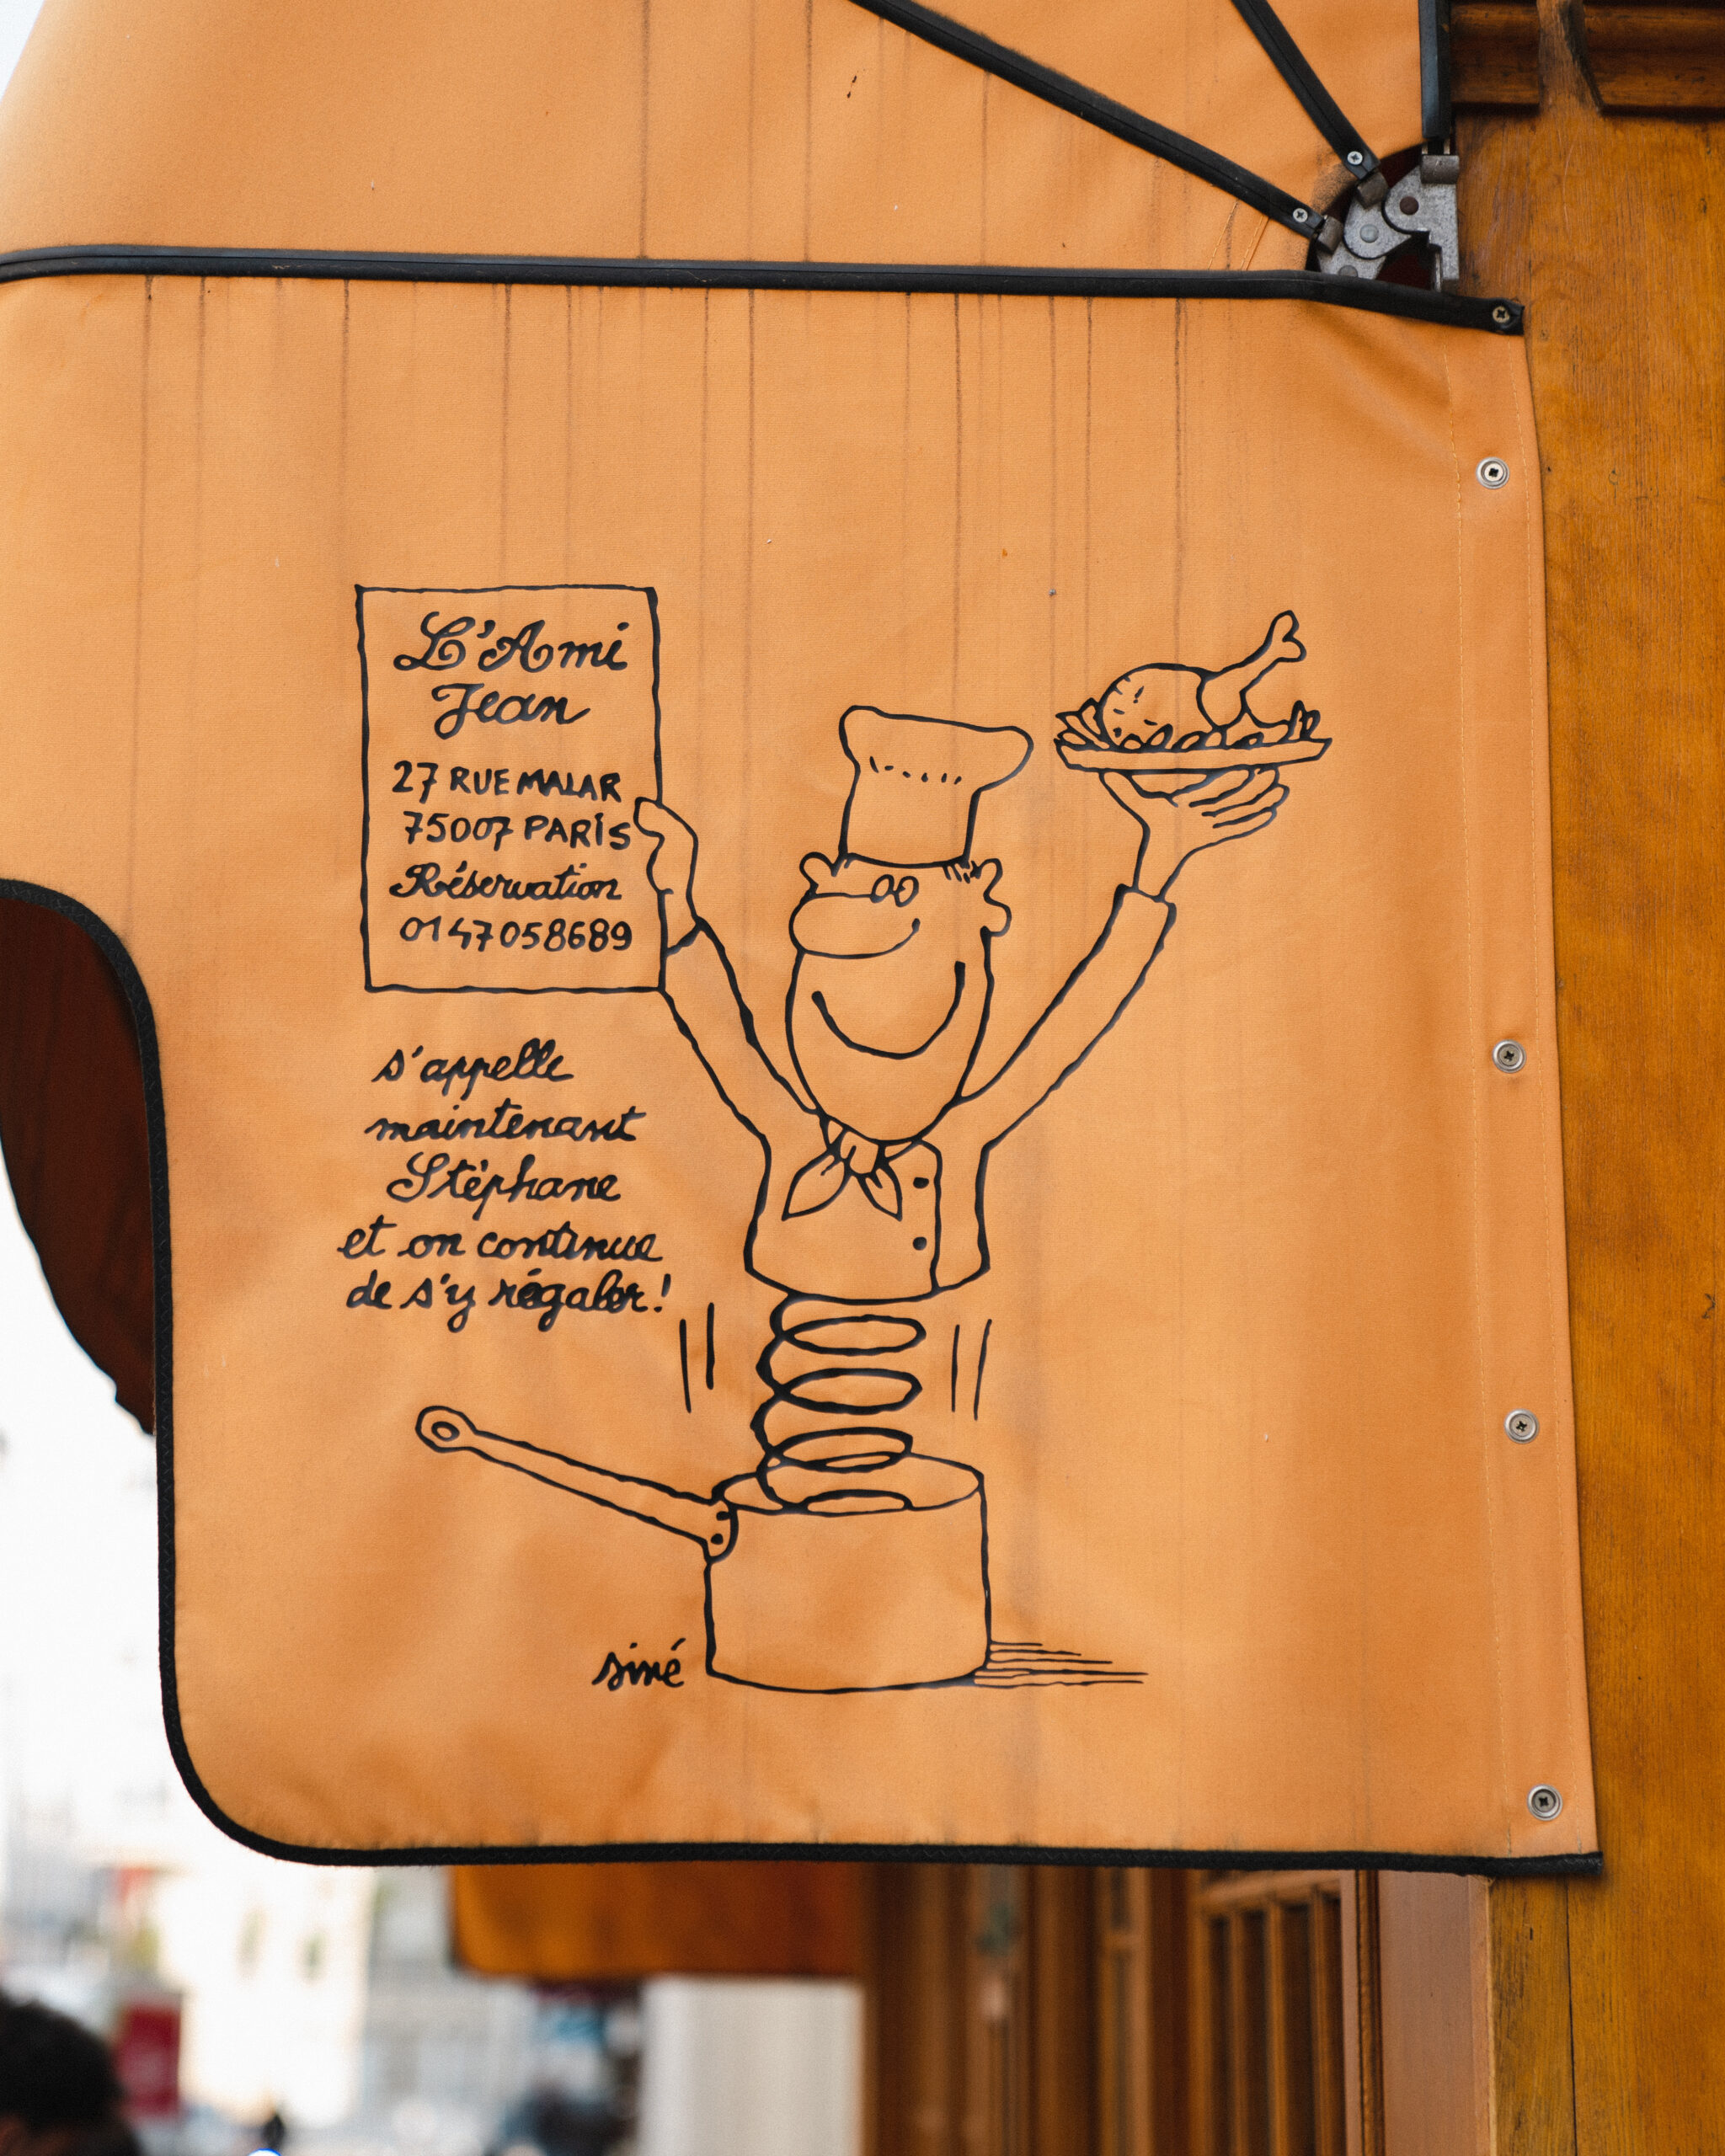 L'Ami
Jean
27 RUE MALAR
75007 PARIS
Réservation
0147058689
s'appelle
maintenant
Stéphane
et on continue
de s'y régaler!
siné